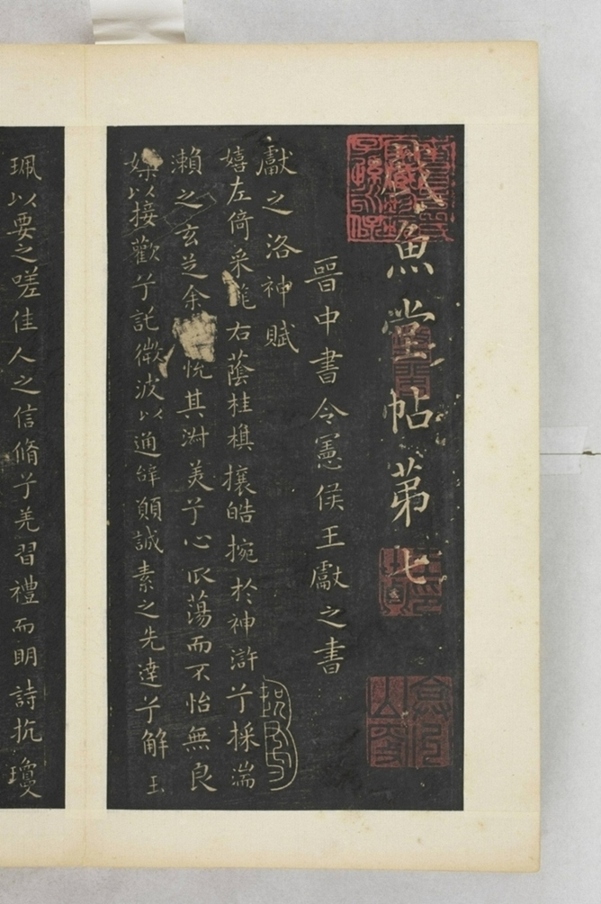 戲魚堂帖第七
晉中書令憲侯王獻之書
獻之洛神賦
嬉左倚采旄右蔭桂樹攘皓捥於神滸兮採湍
瀨之玄芝余悅其淋美兮心振蕩而不怡無良
媒以接歡兮託微波以通辭願誠素之先達兮解玉
珮以要之嗟佳人之信脩兮羌習禮而明詩抗瓊